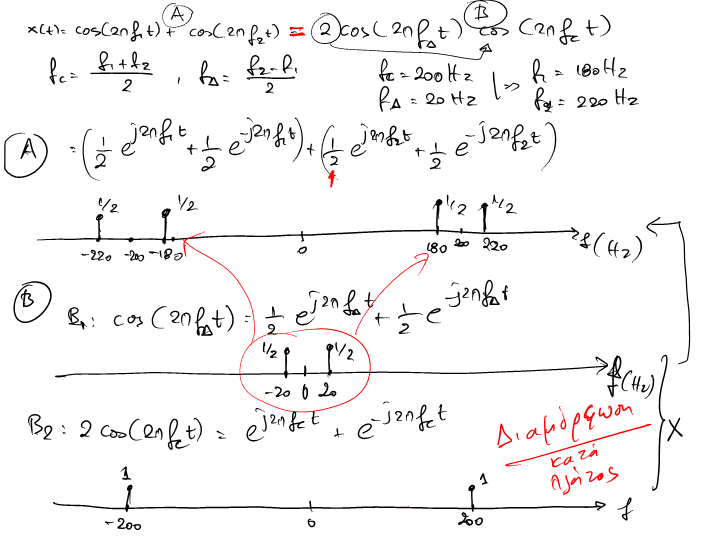 Ⓐ Ⓑ
x(t) = cos(2πf₁t) + cos(2πf₂t) = 2 cos(2πf_Δt) cos(2πf_ct)
f_c = (f₁+f₂)/2 , f_Δ = (f₂-f₁)/2 f_c = 200 Hz ⇒ f₁ = 180 Hz
f_Δ = 20 Hz f₂ = 220 Hz
Ⓐ = (1/2 e^{j2πf₁t} + 1/2 e^{-j2πf₁t}) + (1/2 e^{j2πf₂t} + 1/2 e^{-j2πf₂t})
1/2 1/2 1/2 1/2
-220 -200 -180 0 180 200 220 f(Hz)
Ⓑ B₁: cos(2πf_Δt) = 1/2 e^{j2πf_Δt} + 1/2 e^{-j2πf_Δt}
1/2 1/2
-20 0 20 f(Hz)
B₂: 2 cos(2πf_ct) = e^{j2πf_ct} + e^{-j2πf_ct}
Διαμόρφωση
κατά
πλάτος
X
1 1
-200 0 200 f